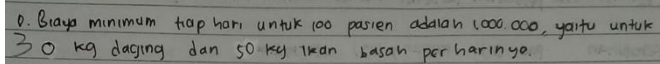 D. Biaya minimum tiap hari untuk 100 pasien adalah 1.000.000, yaitu untuk
30 kg daging dan 50 kg ikan basah per harinya.